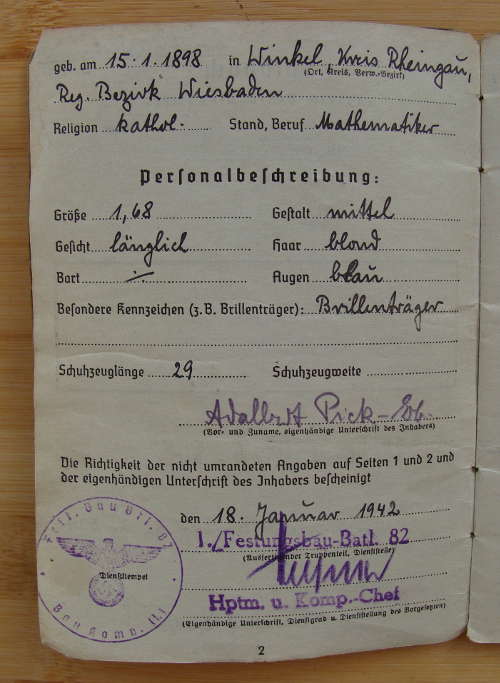 geb. am 15.1.1898 in Winkel, Kreis Rheingau,
(Ort, Kreis, Verw.-Bezirk)
Reg. Bezirk Wiesbaden
Religion kathol. Stand, Beruf Mathematiker
Personalbeschreibung:
Größe 1,68 Gestalt mittel
Gesicht länglich Haar blond
Bart ./. Augen blau
Besondere Kennzeichen (z.B. Brillenträger): Brillenträger
Schuhzeuglänge 29 Schuhzeugweite
Adalbert Pick
(Vor- und Zuname, eigenhändige Unterschrift des Inhabers)
Die Richtigkeit der nicht umrandeten Angaben auf Seiten 1 und 2 und
der eigenhändigen Unterschrift des Inhabers bescheinigt
den 18. Januar 1942
1./Festungsbau-Batl. 82
(Ausfertigender Truppenteil, Dienststelle)
Dienststempel
Hptm. u. Komp.-Chef
(Eigenhändige Unterschrift, Dienstgrad u. Dienststellung des Vorgesetzten)
2